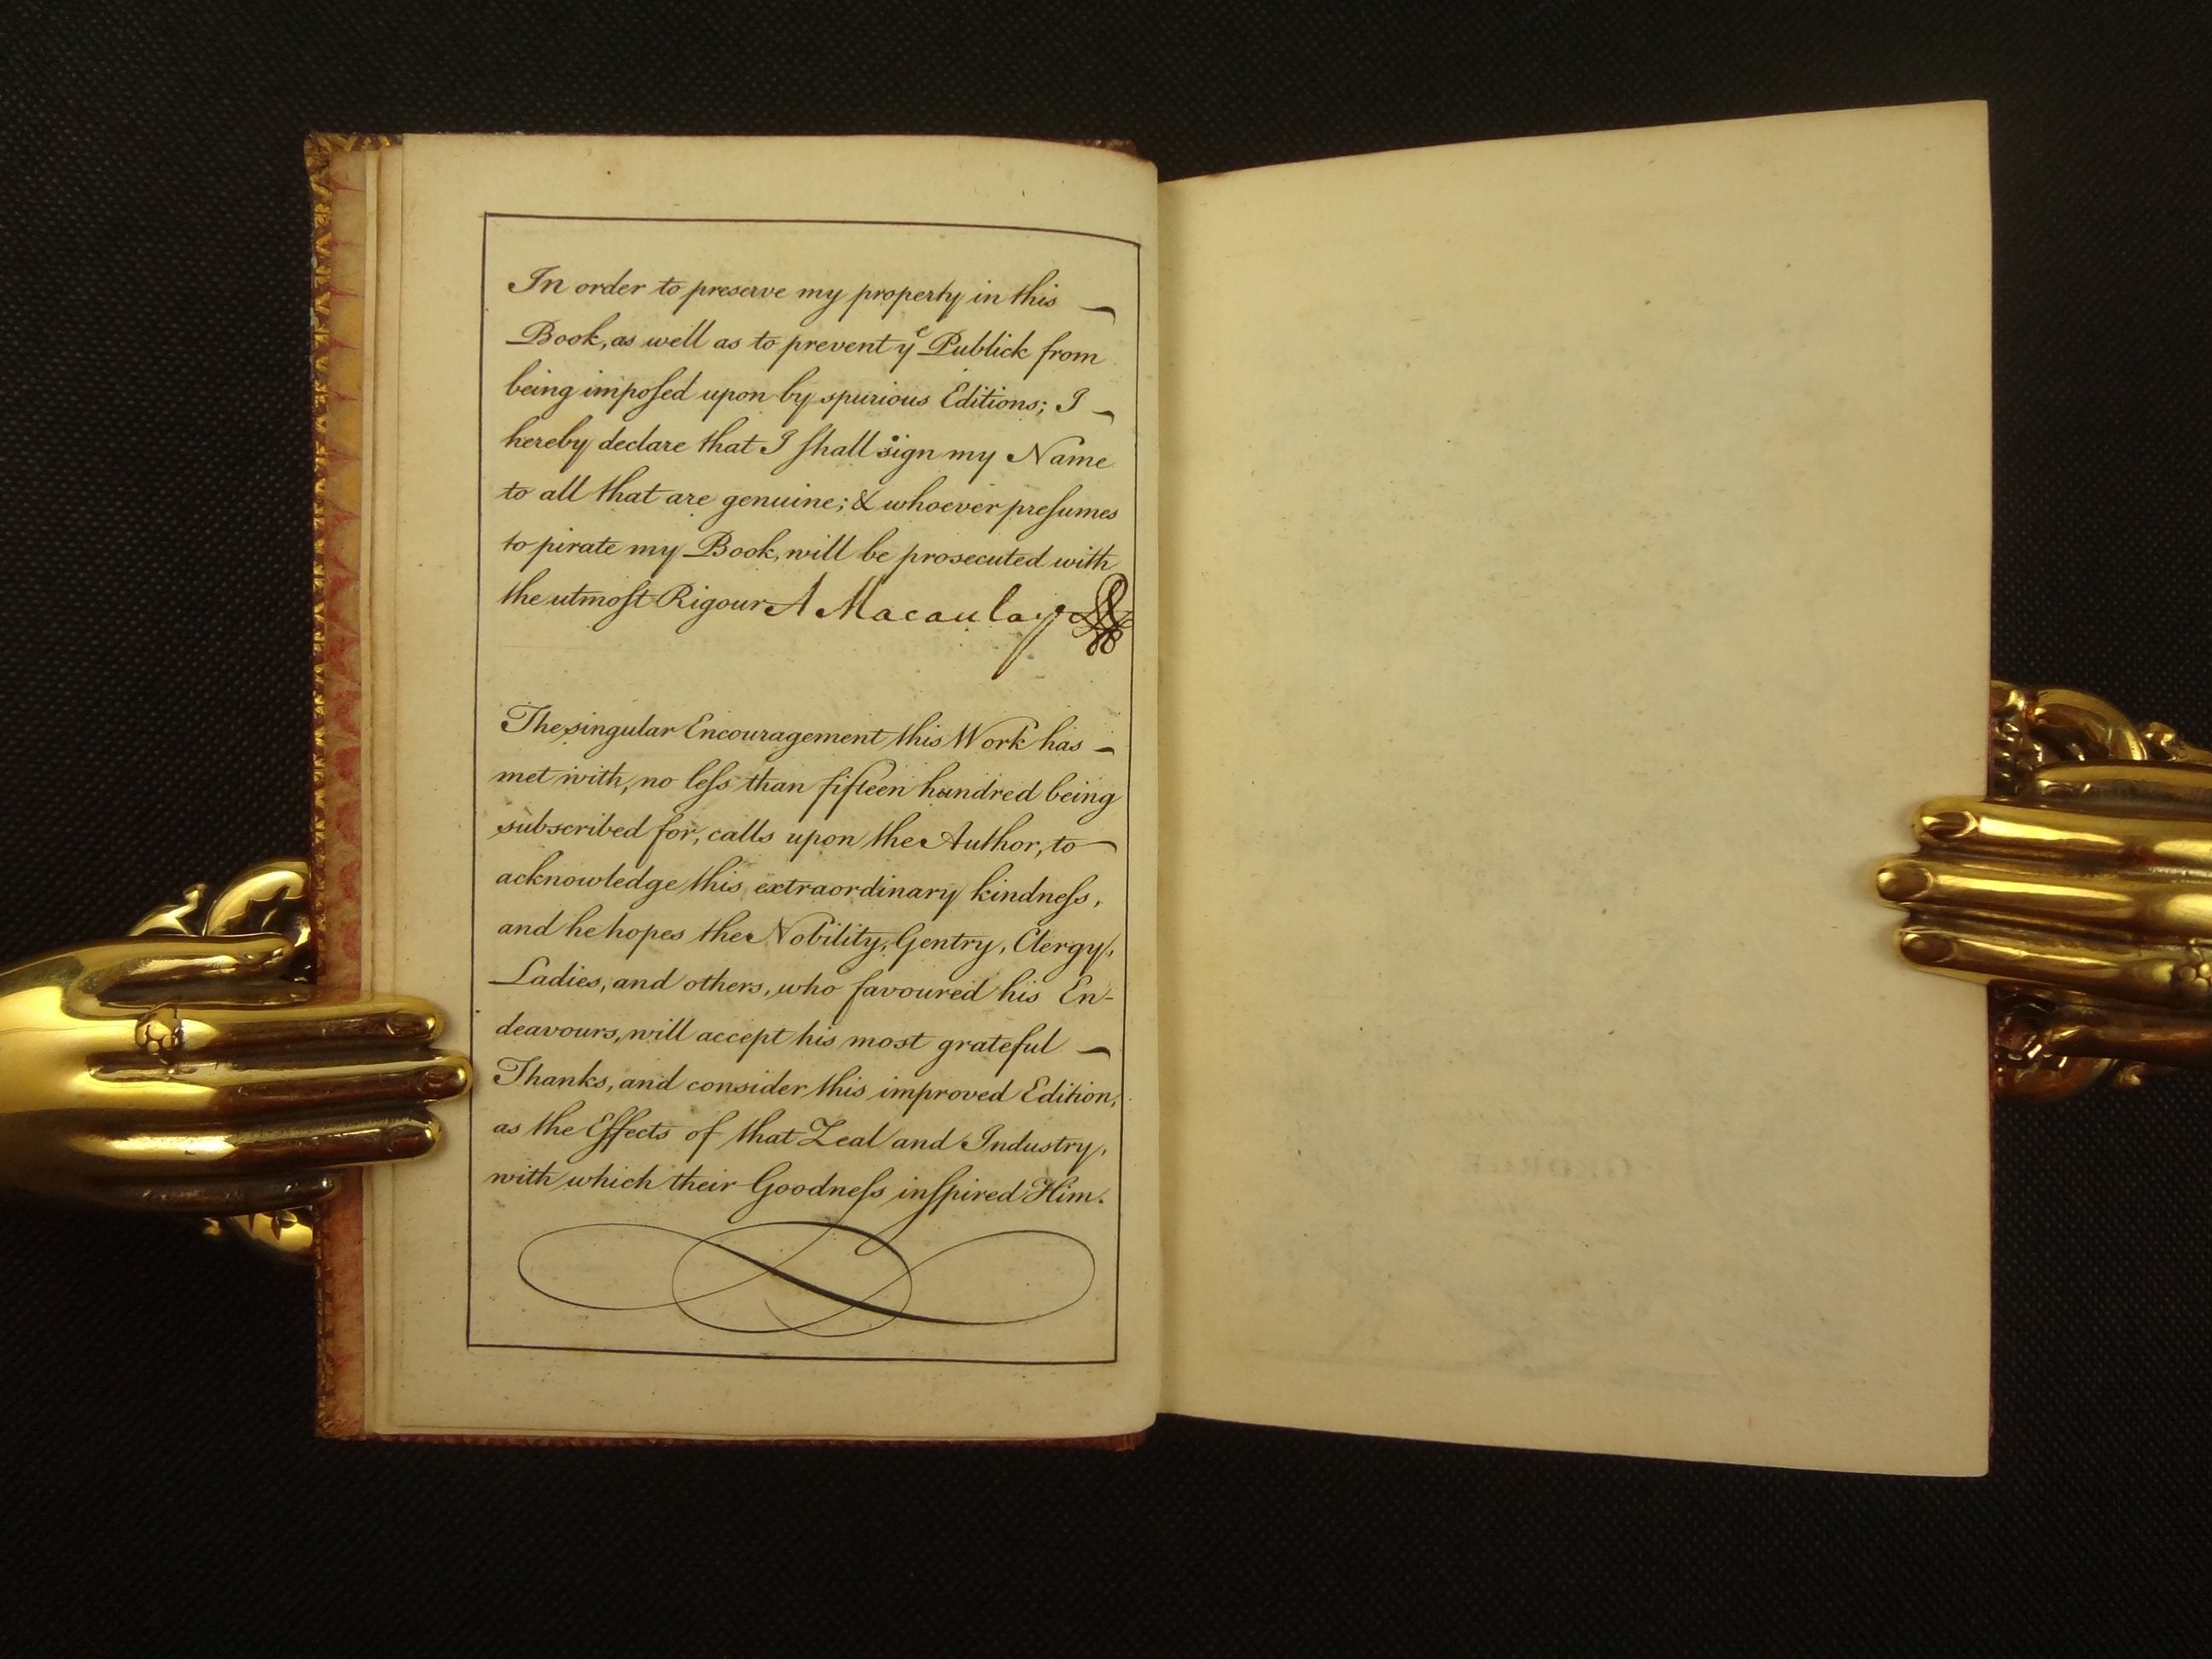 In order to preserve my property in this
Book, as well as to prevent yᵉ Publick from
being impoſed upon by spurious Editions; I
hereby declare that I ſhall sign my Name
to all that are genuine; & whoever preſumes
to pirate my Book, will be prosecuted with
the utmoſt Rigour A Macaulay
The singular Encouragement this Work has
met with, no leſs than fifteen hundred being
subscribed for, calls upon the Author, to
acknowledge this extraordinary kindneſs,
and he hopes the Nobility, Gentry, Clergy,
Ladies, and others, who favoured his En-
deavours, will accept his most grateful
Thanks, and consider this improved Edition,
as the Effects of that Zeal and Industry,
with which their Goodneſs inſpired Him.
GEORGE